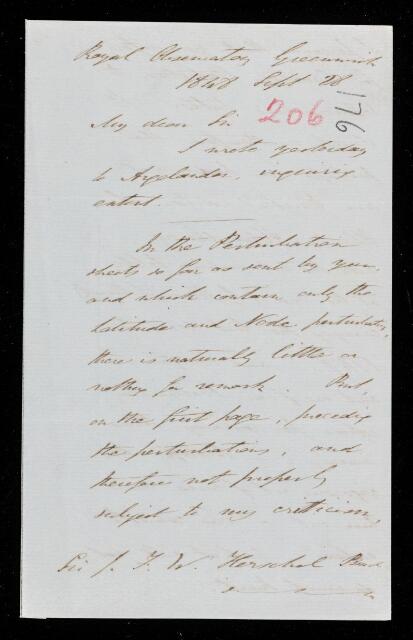 Royal Observatory Greenwich
1848 Sept 28
206
176
My dear Sir
I wrote yesterday
to Argelander, inquiring
extent.
In the Perturbation
sheets so far as sent by you,
and which contain only the
latitude and Node perturbations,
there is naturally little or
nothing for remark. But,
on the first page, preceding
the perturbations, and
therefore not properly
subject to my criticism,
Sir J. F. W. Herschel Bart